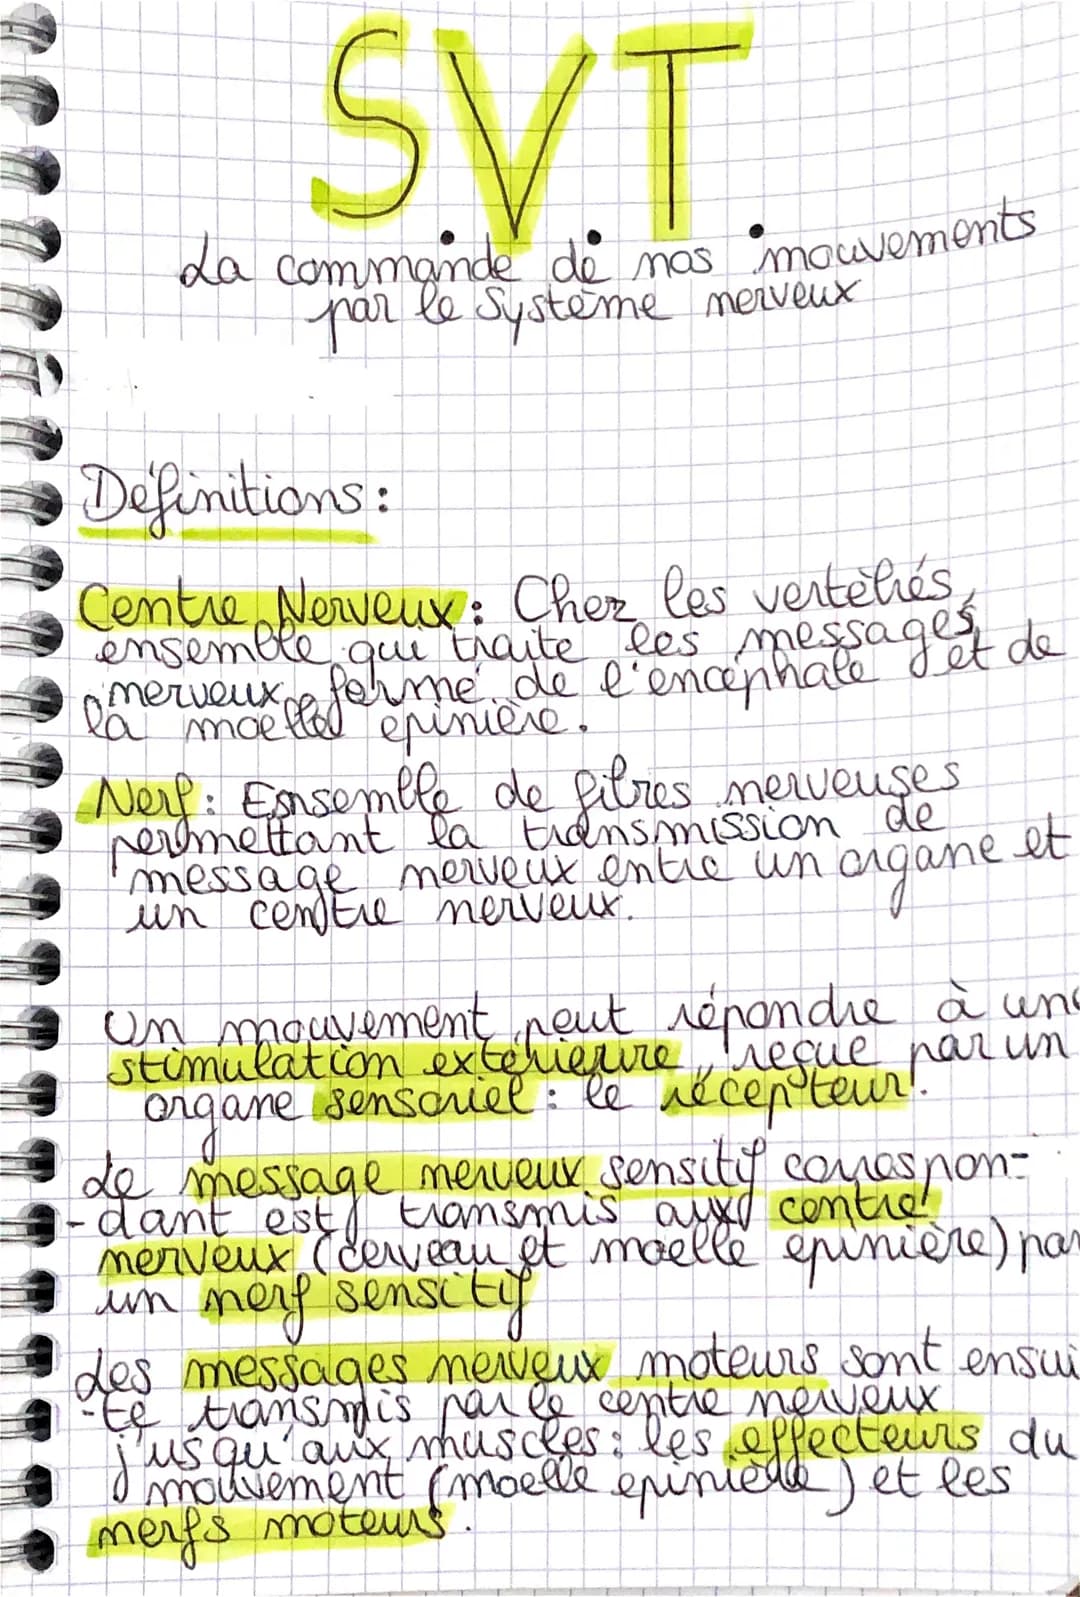 S.V.T.
La commande de nos mouvements
par le Système nerveux
Définitions :
Centre Nerveux : Chez les vertébrés,
ensemble qui traite les messages
nerveux, formé de l'encéphale et de
la moelle épinière.
Nerf : Ensemble de fibres nerveuses
permettant la transmission de
message nerveux entre un organe et
un centre nerveux.
Un mouvement peut répondre à une
stimulation extérieure, reçue par un
organe sensoriel : le récepteur.
Le message nerveux sensitif correspon-
-dant est transmis aux centre
nerveux (cerveau et moelle épinière) par
un nerf sensitif
Les messages nerveux moteurs sont ensui
-te transmis par le centre nerveux
jusqu'aux muscles : les effecteurs du
mouvement (moelle épinière) et les
nerfs moteurs.